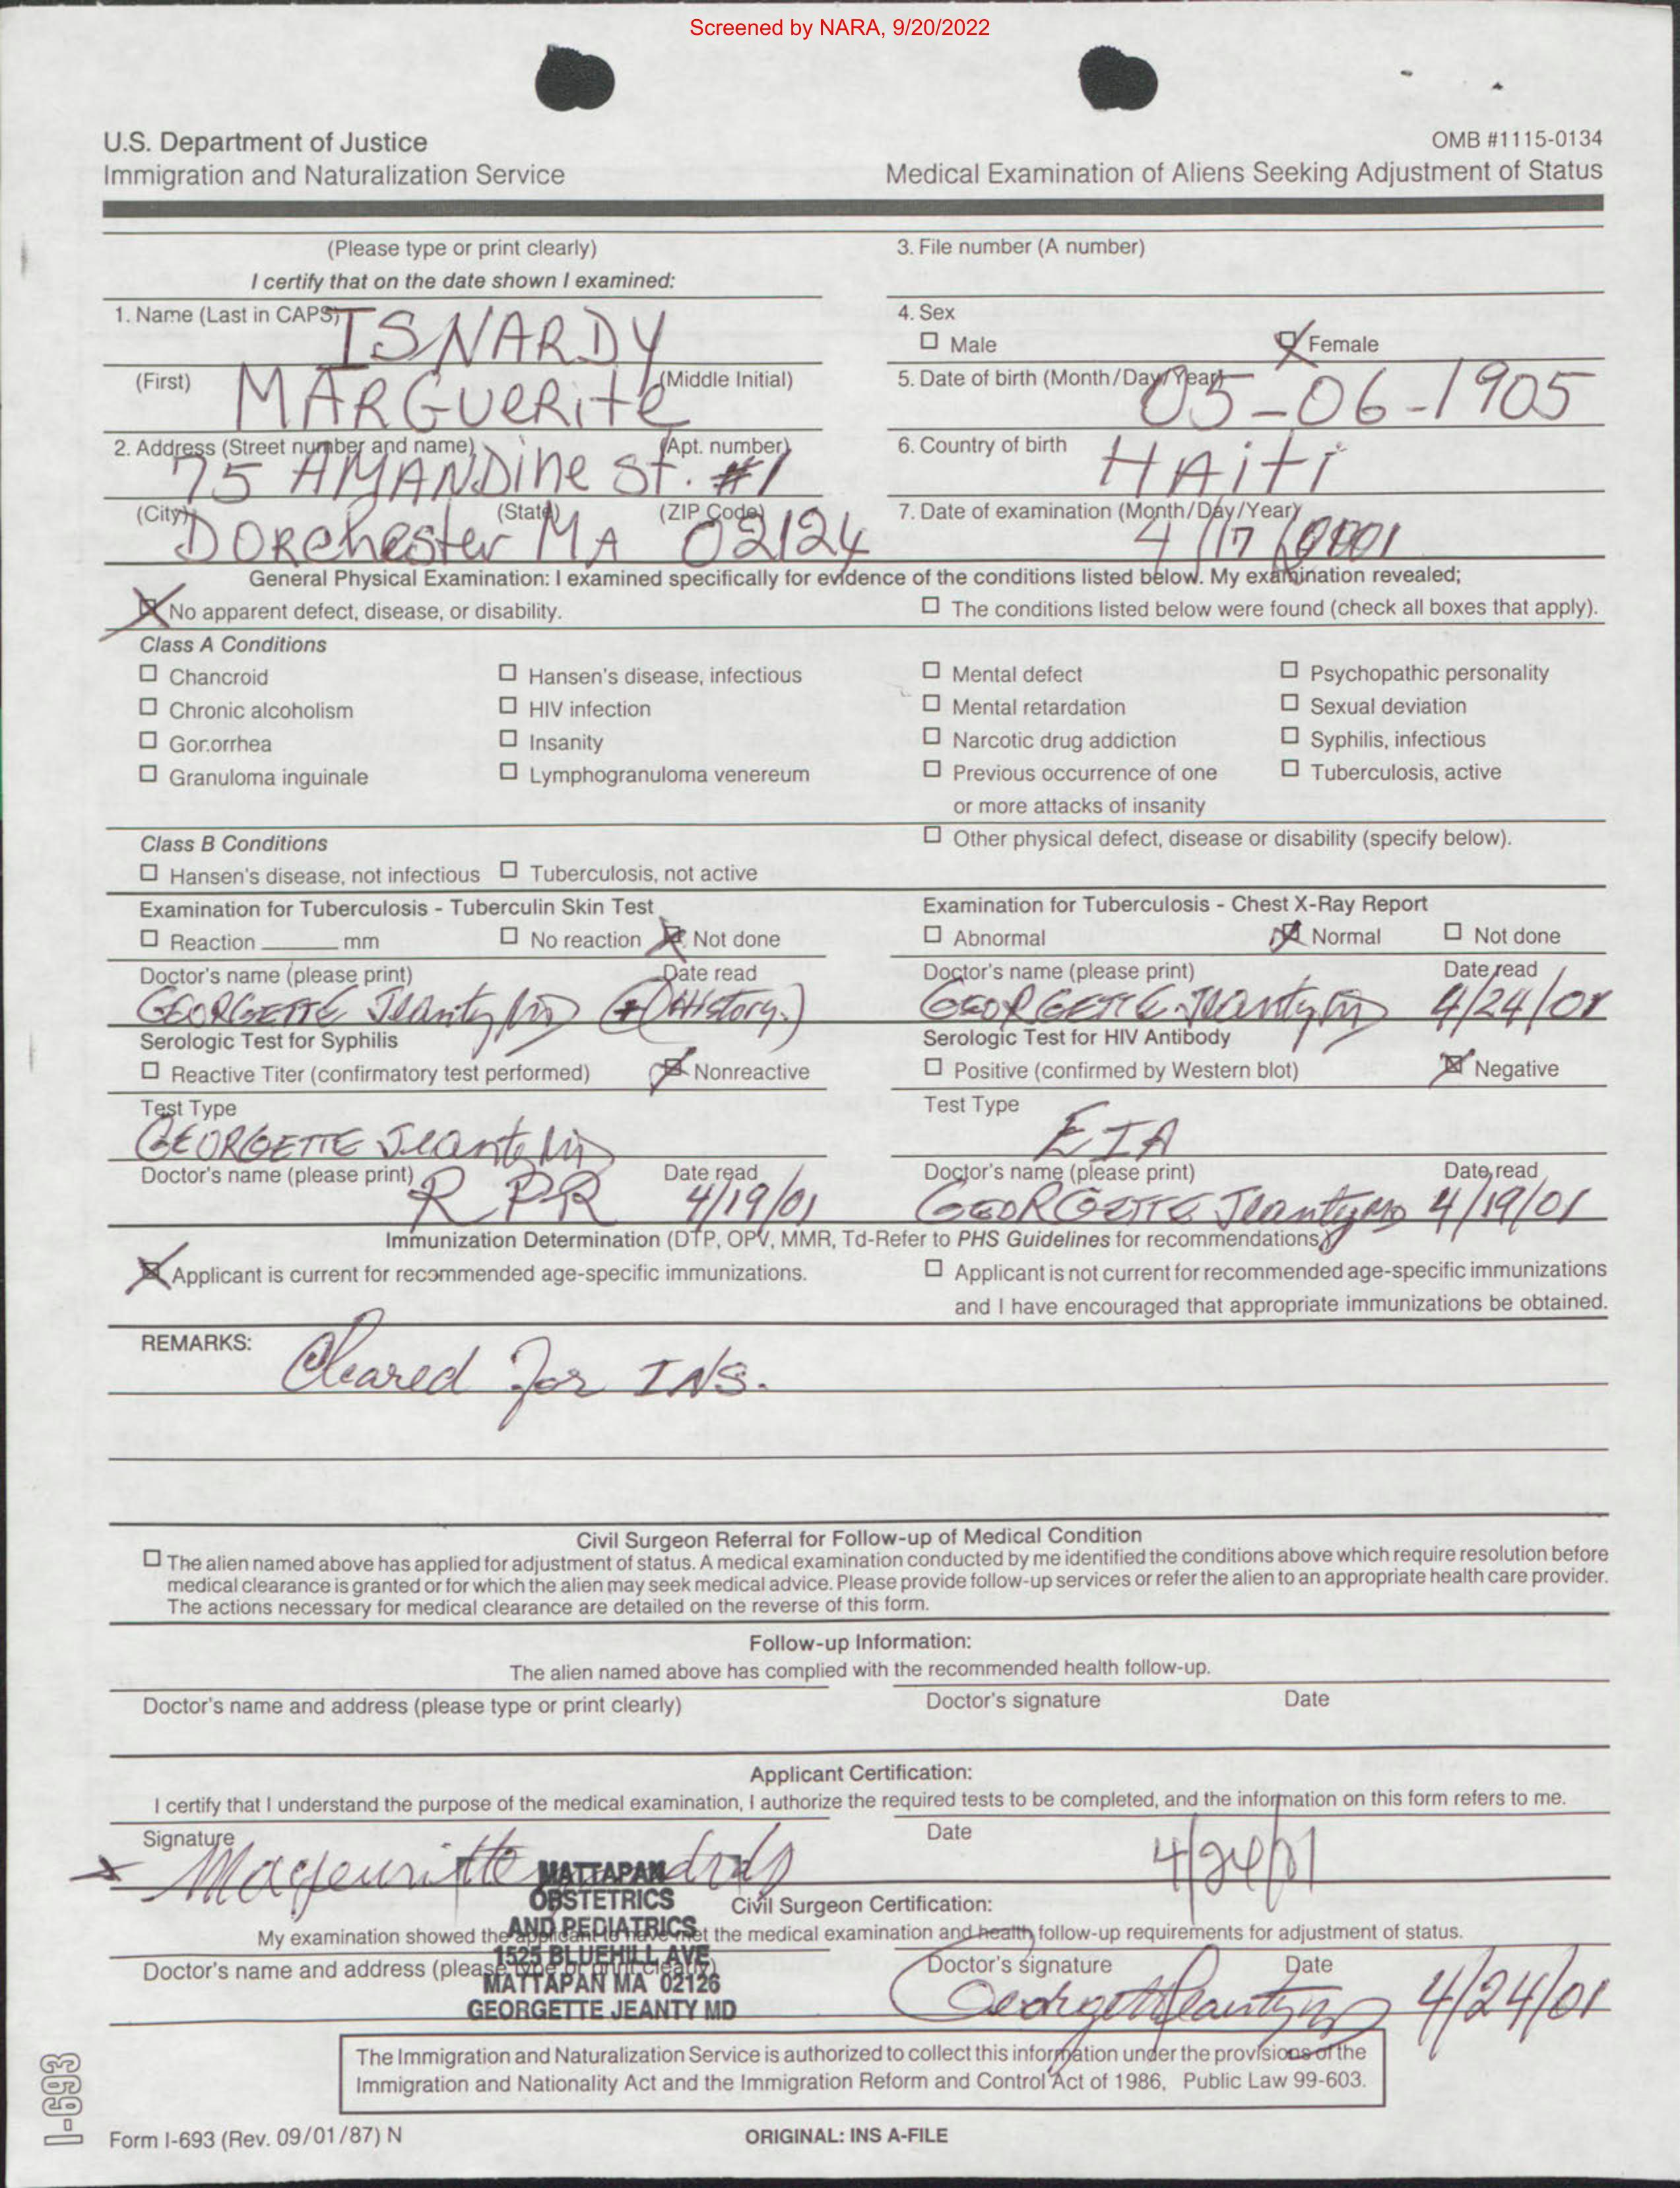 Screened by NARA, 9/20/2022
U.S. Department of Justice
Immigration and Naturalization Service
OMB #1115-0134
Medical Examination of Aliens Seeking Adjustment of Status
(Please type or print clearly)
I certify that on the date shown I examined:
3. File number (A number)
1. Name (Last in CAPS) ISNARDY
4. Sex
☐ Male ☒ Female
(First) MARGUERITE (Middle Initial)
5. Date of birth (Month/Day/Year) 05-06-1905
2. Address (Street number and name) (Apt. number)
75 AMANDINE St. #1
6. Country of birth HAITI
(City) (State) (ZIP Code)
DORchester MA 02124
7. Date of examination (Month/Day/Year)
4/17/
General Physical Examination: I examined specifically for evidence of the conditions listed below. My examination revealed;
☒ No apparent defect, disease, or disability. ☐ The conditions listed below were found (check all boxes that apply).
Class A Conditions
☐ Chancroid ☐ Hansen's disease, infectious ☐ Mental defect ☐ Psychopathic personality
☐ Chronic alcoholism ☐ HIV infection ☐ Mental retardation ☐ Sexual deviation
☐ Gonorrhea ☐ Insanity ☐ Narcotic drug addiction ☐ Syphilis, infectious
☐ Granuloma inguinale ☐ Lymphogranuloma venereum ☐ Previous occurrence of one ☐ Tuberculosis, active
or more attacks of insanity
Class B Conditions ☐ Other physical defect, disease or disability (specify below).
☐ Hansen's disease, not infectious ☐ Tuberculosis, not active
Examination for Tuberculosis - Tuberculin Skin Test
☐ Reaction ______ mm ☐ No reaction ☒ Not done
Doctor's name (please print) Date read
GEORGETTE Jeanty MD (+) (History.)
Examination for Tuberculosis - Chest X-Ray Report
☐ Abnormal ☒ Normal ☐ Not done
Doctor's name (please print) Date read
GEORGETTE Jeanty MD 4/24/01
Serologic Test for Syphilis
☐ Reactive Titer (confirmatory test performed) ☒ Nonreactive
Test Type
GEORGETTE Jeanty MD
Doctor's name (please print) Date read
RPR 4/19/01
Serologic Test for HIV Antibody
☐ Positive (confirmed by Western blot) ☒ Negative
Test Type
EIA
Doctor's name (please print) Date read
GEORGETTE Jeanty MD 4/19/01
Immunization Determination (DTP, OPV, MMR, Td-Refer to PHS Guidelines for recommendations)
☒ Applicant is current for recommended age-specific immunizations.
☐ Applicant is not current for recommended age-specific immunizations
and I have encouraged that appropriate immunizations be obtained.
REMARKS: Cleared for INS.
Civil Surgeon Referral for Follow-up of Medical Condition
☐ The alien named above has applied for adjustment of status. A medical examination conducted by me identified the conditions above which require resolution before
medical clearance is granted or for which the alien may seek medical advice. Please provide follow-up services or refer the alien to an appropriate health care provider.
The actions necessary for medical clearance are detailed on the reverse of this form.
Follow-up Information:
The alien named above has complied with the recommended health follow-up.
Doctor's name and address (please type or print clearly) Doctor's signature Date
Applicant Certification:
I certify that I understand the purpose of the medical examination, I authorize the required tests to be completed, and the information on this form refers to me.
Signature Date
4/24/01
Civil Surgeon Certification:
My examination showed the applicant to have met the medical examination and health follow-up requirements for adjustment of status.
Doctor's name and address (please type or print clearly)
MATTAPAN
OBSTETRICS
AND PEDIATRICS
1525 BLUEHILL AVE
MATTAPAN MA 02126
GEORGETTE JEANTY MD
Doctor's signature Date
Georgette Jeanty MD 4/24/01
The Immigration and Naturalization Service is authorized to collect this information under the provisions of the
Immigration and Nationality Act and the Immigration Reform and Control Act of 1986, Public Law 99-603.
I-693
Form I-693 (Rev. 09/01/87) N
ORIGINAL: INS A-FILE